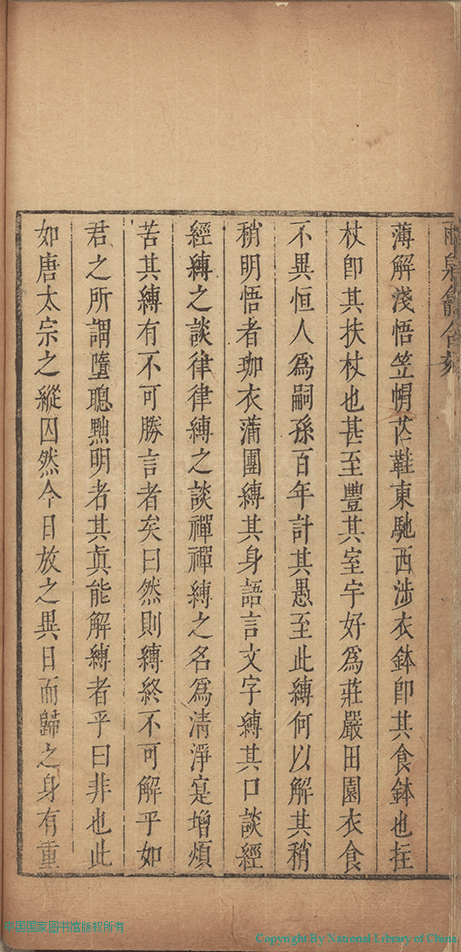 薄解淺悟笠㡌芒鞋東馳西涉衣鉢即其食鉢也拄
杖即其扶杖也甚至豐其室宇好爲莊嚴田園衣食
不異恒人爲嗣孫百年計其愚至此縛何以解其稍
稍明悟者珈衣蒲團縛其身語言文字縛其口談經
經縛之談律律縛之談禪禪縛之名爲清淨寔增煩
苦其縛有不可勝言者矣曰然則縛終不可解乎如
君之所謂墮聰黜明者其真能解縛者乎曰非也此
如唐太宗之縱囚然今日放之異日而歸之身有重
中国国家图书馆版权所有
Copyright By National Library of China